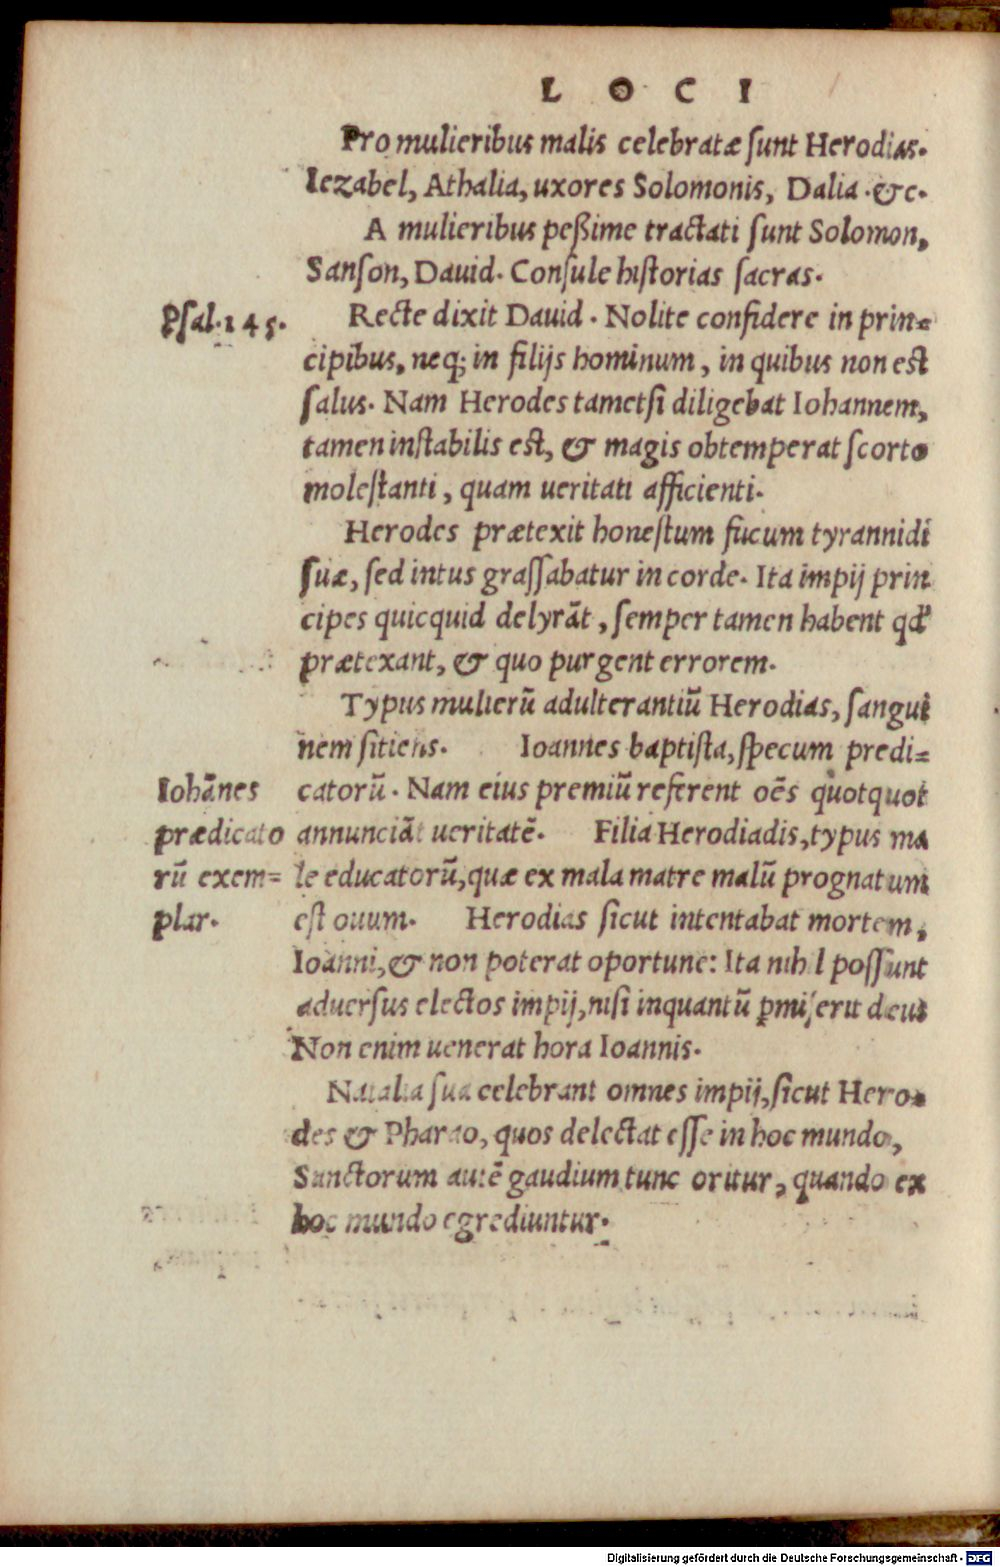 LOCI
Pro mulieribus malis celebratæ sunt Herodias.
Iezabel, Athalia, uxores Solomonis, Dalia .&c.
A mulieribus peßime tractati sunt Solomon,
Sanson, Dauid. Consule historias sacras.
Psal.145.
Recte dixit Dauid. Nolite confidere in prin=
cipibus, neq; in filijs hominum, in quibus non est
salus. Nam Herodes tametsi diligebat Iohannem,
tamen instabilis est, & magis obtemperat scorto
molestanti, quam ueritati afficienti.
Herodes prætexit honestum fucum tyrannidi
suæ, sed intus grassabatur in corde. Ita impij prin
cipes quicquid delyrāt, semper tamen habent qd
prætexant, & quo purgent errorem.
Typus mulierū adulterantiū Herodias, sangui
nem sitiens. Ioannes baptista, specum predi=
catorū. Nam eius premiū referent oēs quotquot
annunciāt ueritatē. Filia Herodiadis, typus ma
le educatorū, quæ ex mala matre malū prognatum
est ouum. Herodias sicut intentabat mortem,
Ioanni, & non poterat oportune: Ita nihil possunt
aduersus electos impij, nisi inquantū pmiserit deus
Non enim uenerat hora Ioannis.
Iohānes
prædicato
rū exem=
plar.
Natalia sua celebrant omnes impij, sicut Hero=
des & Pharao, quos delectat esse in hoc mundo,
Sanctorum autē gaudium tunc oritur, quando ex
hoc mundo egrediuntur.
Digitalisierung gefördert durch die Deutsche Forschungsgemeinschaft - DFG